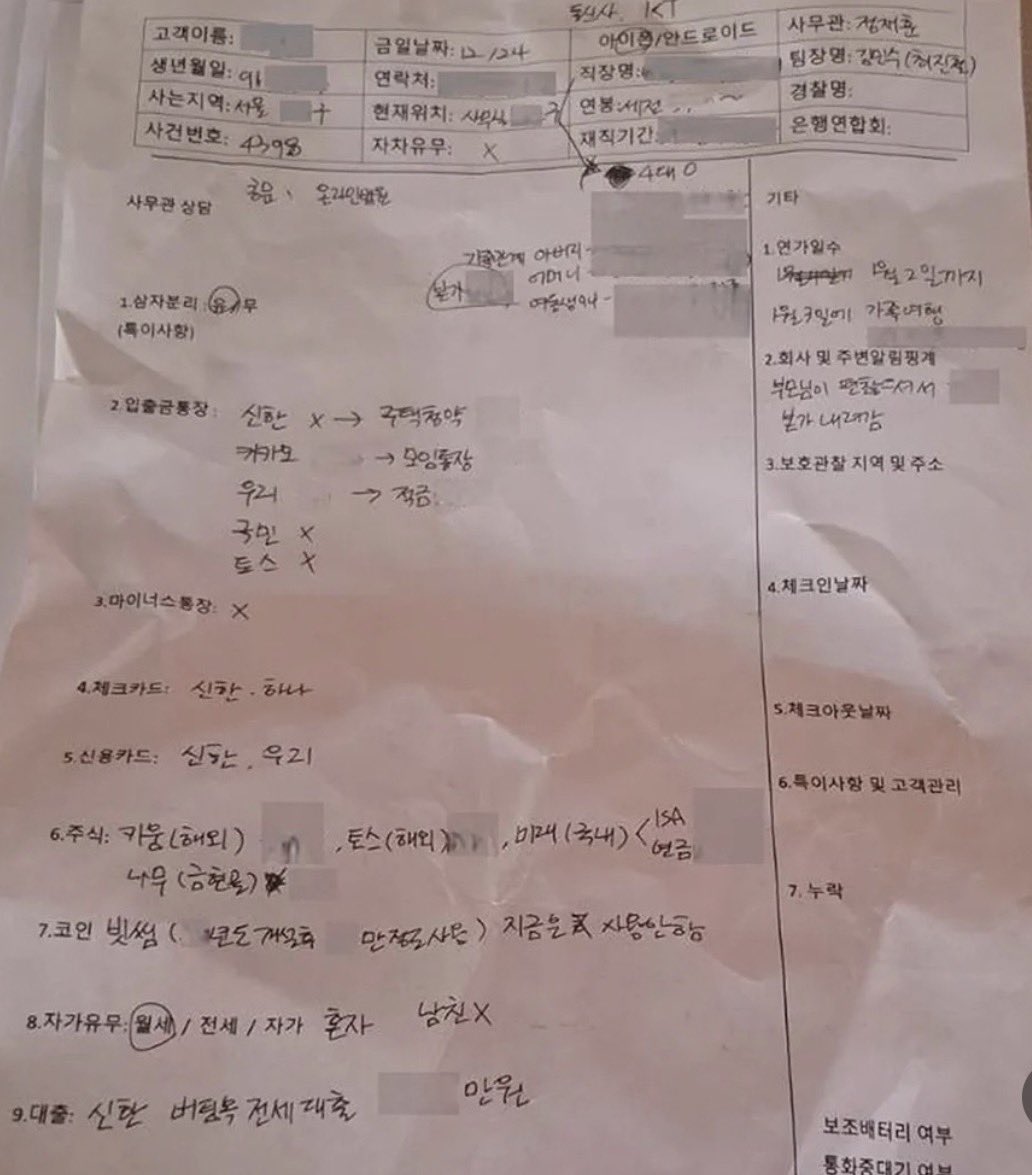 통신사 KT
고객이름:
금일날짜: 12/24
아이폰/안드로이드
사무관: 정재훈
생년월일: 91
연락처:
직장명:
팀장명: 김민수(최진철)
사는지역: 서울 구
현재위치: 사무실 구
연봉: 세전 ~
경찰명:
사건번호: 43998
자차유무: X
재직기간:
은행연합회:
4대 O
사무관 상담
온라인법원
가족관계 아버리-
어머니-
본가
여동생하나-
1.삼자분리: 유/무
(특이사항)
2.입출금통장: 신한 X → 주택청약
카카오 → 모임통장
우리 → 적금
국민 X
토스 X
3.마이너스통장: X
4.체크카드: 신한. 하나
5.신용카드: 신한, 우리
6.주식: 키움(해외) , 토스(해외) , 미래(국내) < ISA
연금
나무(금현물)
7.코인 빗썸( 년도 개설후 만정도사용) 지금은 사용안함
8.자가유무: 월세 / 전세 / 자가 혼자 남친X
9.대출: 신한 버팀목 전세대출 만원
기타
1.연가일수
1월2일까지
1월3일에 가족여행
2.회사 및 주변알림핑계
부모님이 편찮으셔서
본가 내려감
3.보호관찰 지역 및 주소
4.체크인날짜
5.체크아웃날짜
6.특이사항 및 고객관리
7.누락
보조배터리 여부
통화중대기 여부